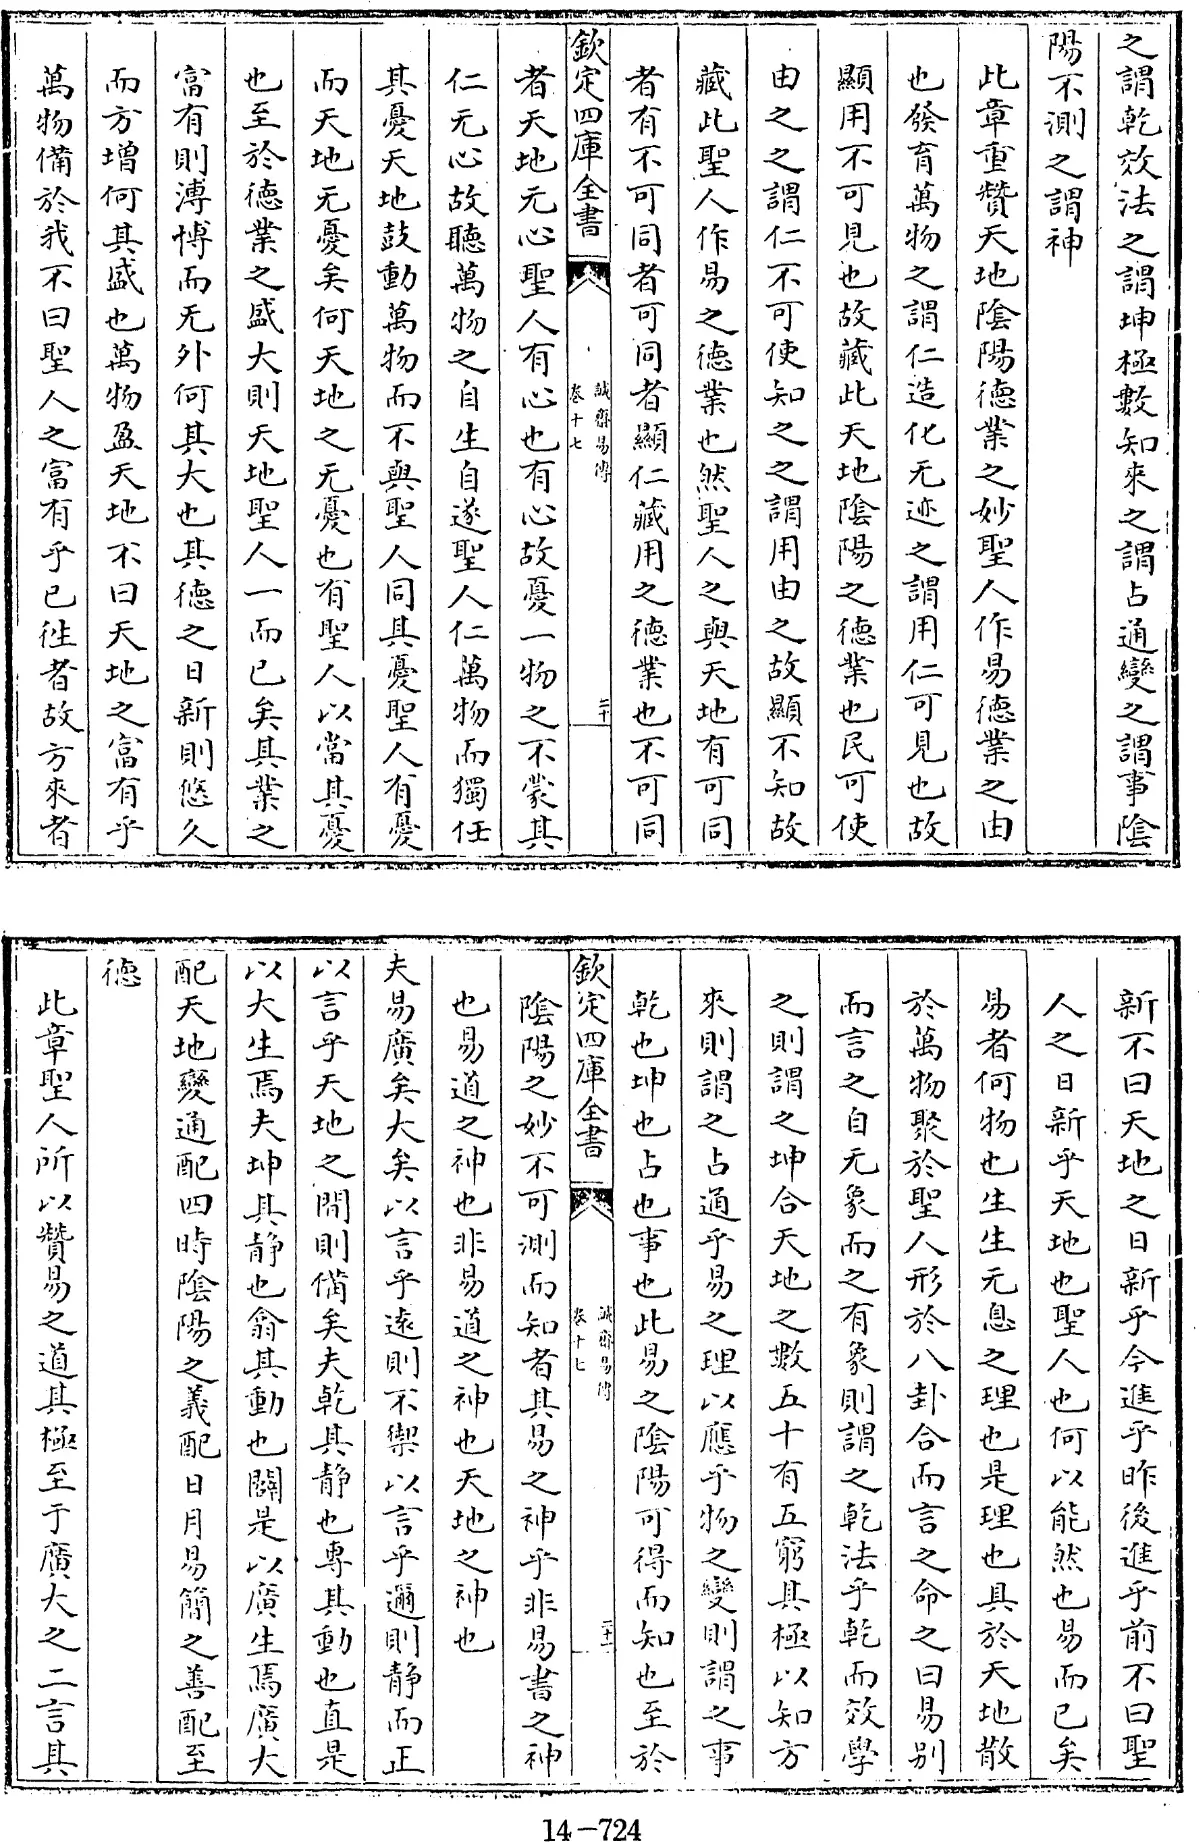 之謂乾效法之謂坤極數知來之謂占通變之謂事陰
陽不測之謂神
此章重贊天地陰陽德業之妙聖人作易德業之由
也發育萬物之謂仁造化无迹之謂用仁可見也故
顯用不可見也故藏此天地陰陽之德業也民可使
由之之謂仁不可使知之之謂用由之故顯不知故
藏此聖人作易之德業也然聖人之與天地有可同
者有不可同者可同者顯仁藏用之德業也不可同
欽定四庫全書
誠齋易傳
卷十七
二十
者天地无心聖人有心也有心故憂一物之不蒙其
仁无心故聽萬物之自生自遂聖人仁萬物而獨任
其憂天地鼓動萬物而不與聖人同其憂聖人有憂
而天地无憂矣何天地之无憂也有聖人以當其憂
也至於德業之盛大則天地聖人一而已矣其業之
富有則溥博而无外何其大也其德之日新則悠久
而方增何其盛也萬物盈天地不曰天地之富有乎
萬物備於我不曰聖人之富有乎已徃者故方來者
新不曰天地之日新乎今進乎昨後進乎前不曰聖
人之日新乎天地也聖人也何以能然也易而已矣
易者何物也生生无息之理也是理也具於天地散
於萬物聚於聖人形於八卦合而言之命之曰易別
而言之自无象而之有象則謂之乾法乎乾而效學
之則謂之坤合天地之數五十有五窮其極以知方
來則謂之占通乎易之理以應乎物之變則謂之事
乾也坤也占也事也此易之陰陽可得而知也至於
欽定四庫全書
誠齋易傳
卷十七
二十一
陰陽之妙不可測而知者其易之神乎非易書之神
也易道之神也非易道之神也天地之神也
夫易廣矣大矣以言乎遠則不禦以言乎邇則静而正
以言乎天地之間則備矣夫乾其静也專其動也直是
以大生焉夫坤其静也翕其動也闢是以廣生焉廣大
配天地變通配四時陰陽之義配日月易簡之善配至
德
此章聖人所以贊易之道其極至于廣大之二言其
14-724